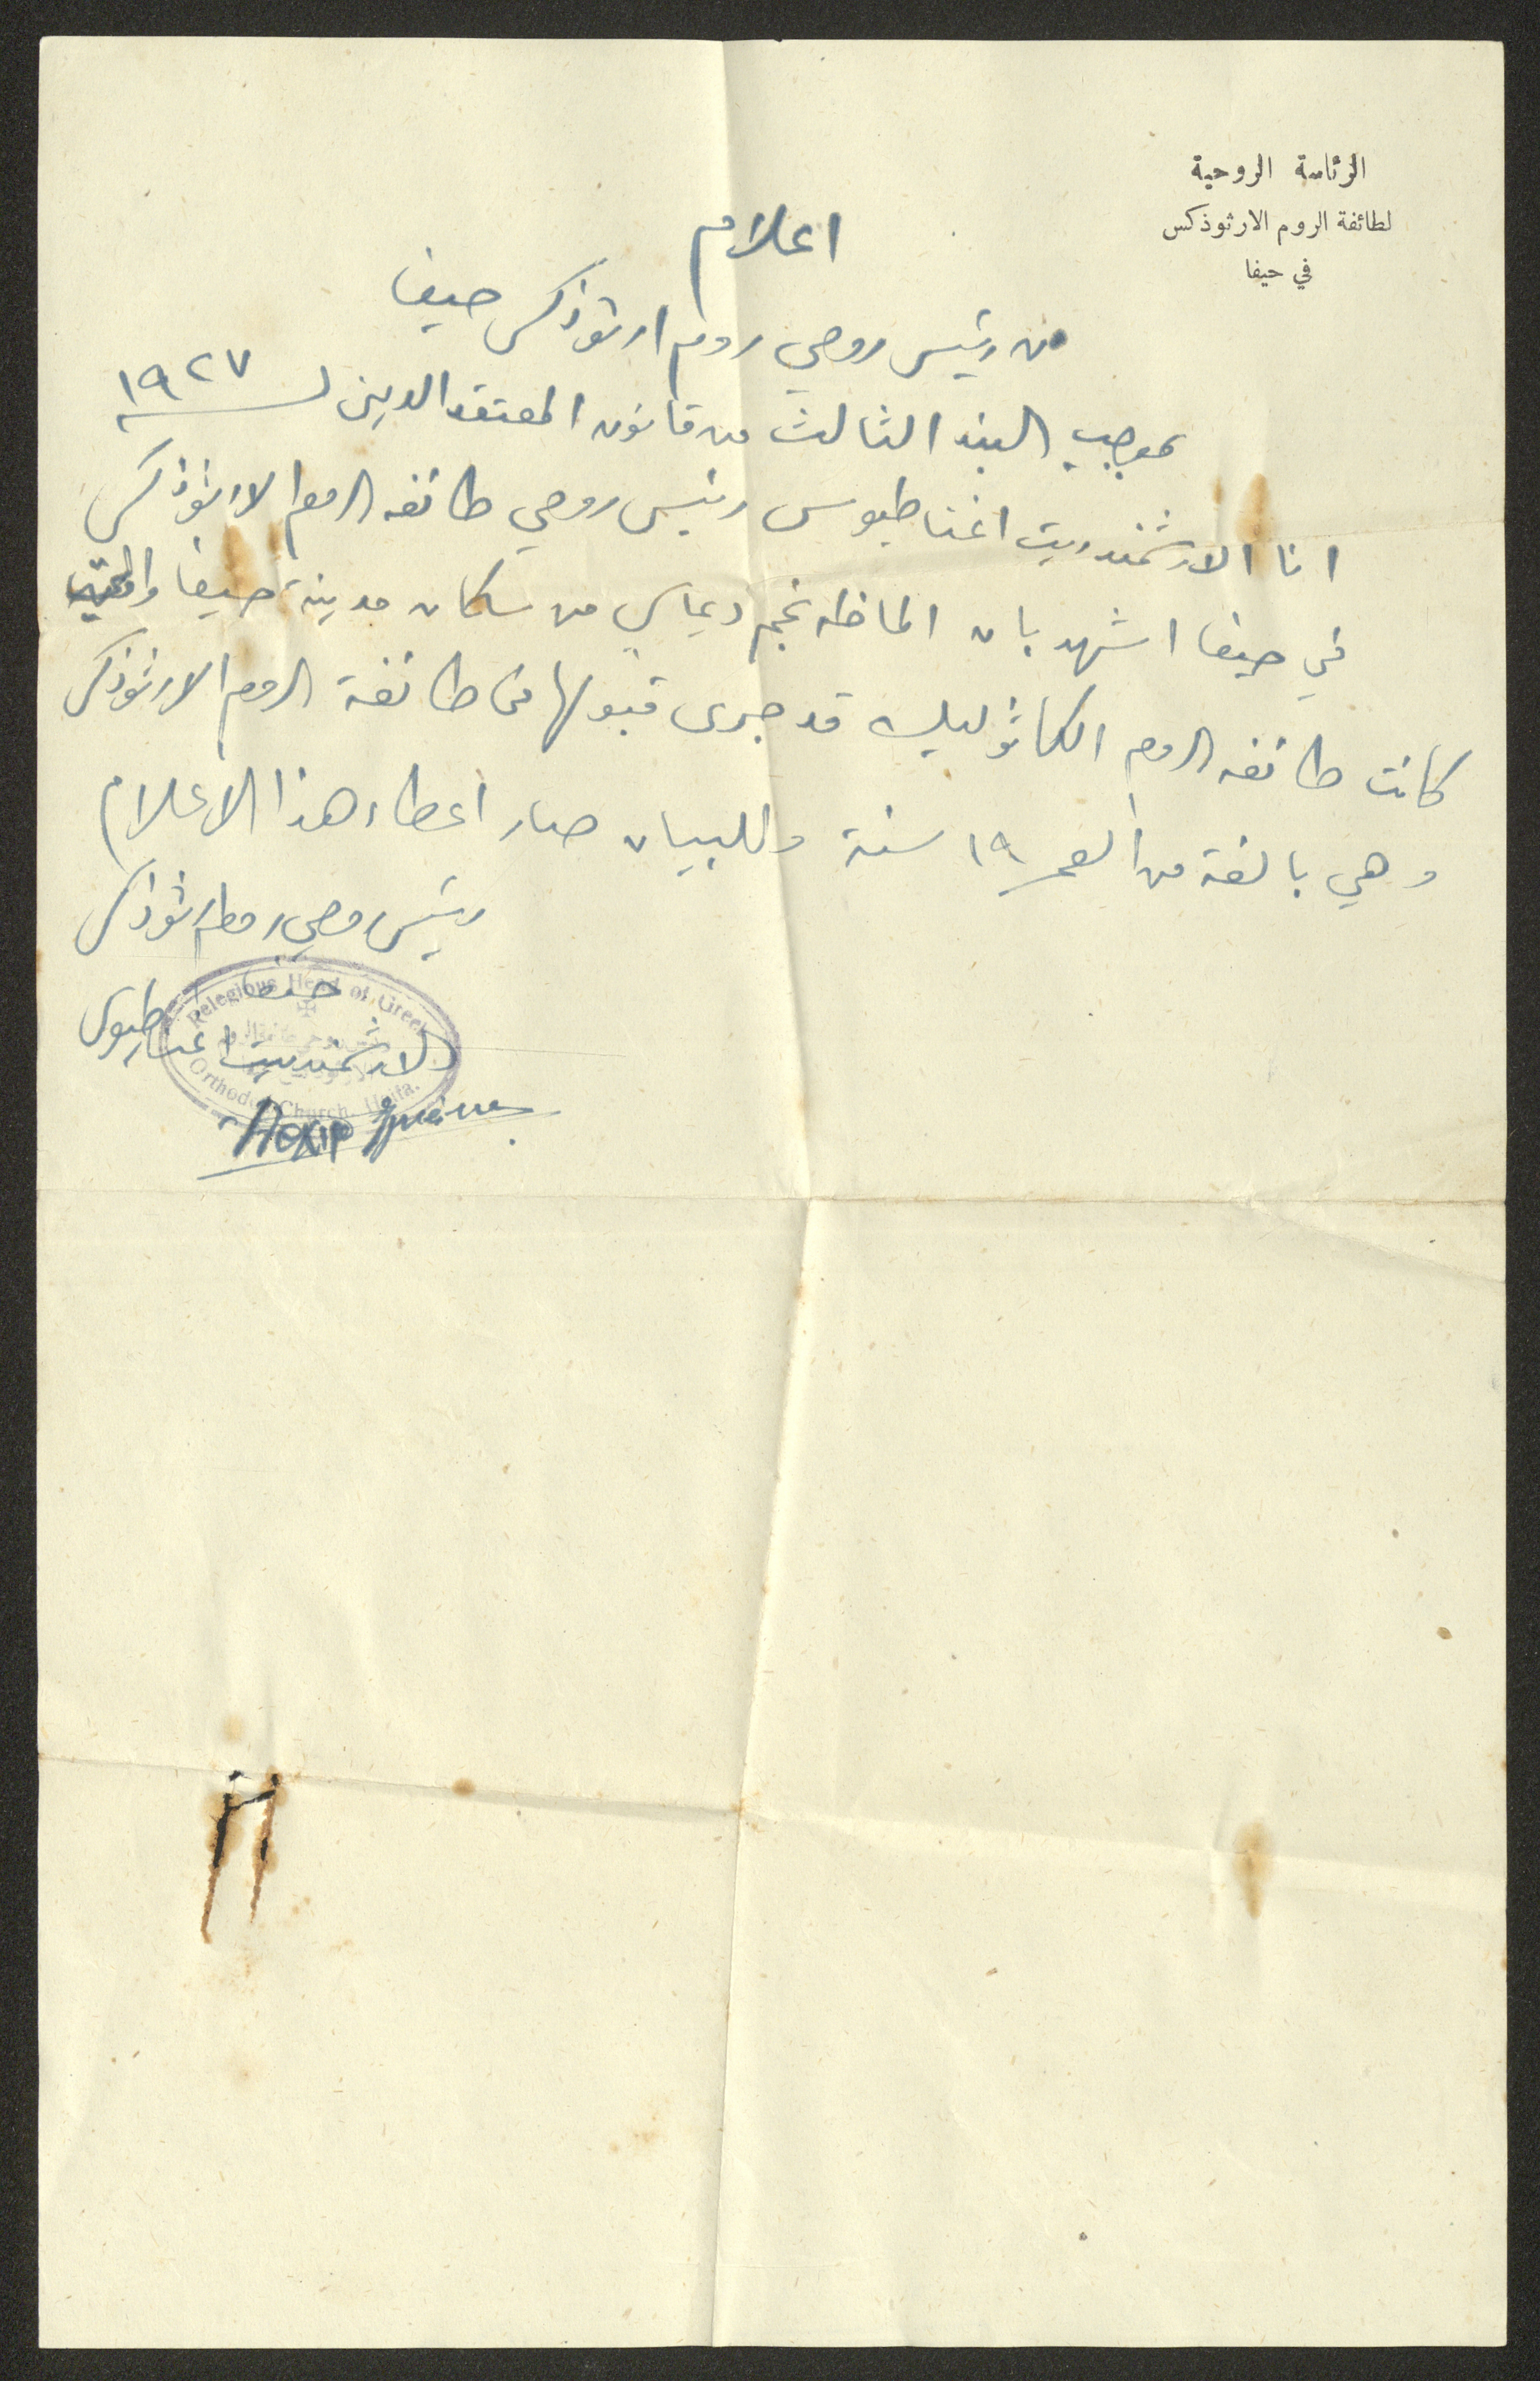 الرئاسة الروحية
لطائفة الروم الارثوذكس
في حيفا
اعلام
من رئيس روحي روم ارثوذكس حيفا
بموجب البند الثالث من قانون المعتقد الديني لسنة ١٩٢٧
انا الارشمندريت اغناطيوس رئيس روحي طائفه الروم الارثوذكس
في حيفا اشهد بان الماظه نجم ديماسي من سكان مدينة حيفا
كانت طائفه الروم الكاثوليك قد جرى قبولها في طائفة الروم الارثوذكس
وهي بالغة من العمر ١٩ سنة وللبيان صار اعطاء هذا الاعلام
رئيس روحي روم ارثوذكس
حيفا
الارشمندريت اغناطيوس
Relegious Head of Greek
Orthodox Church. Haifa.